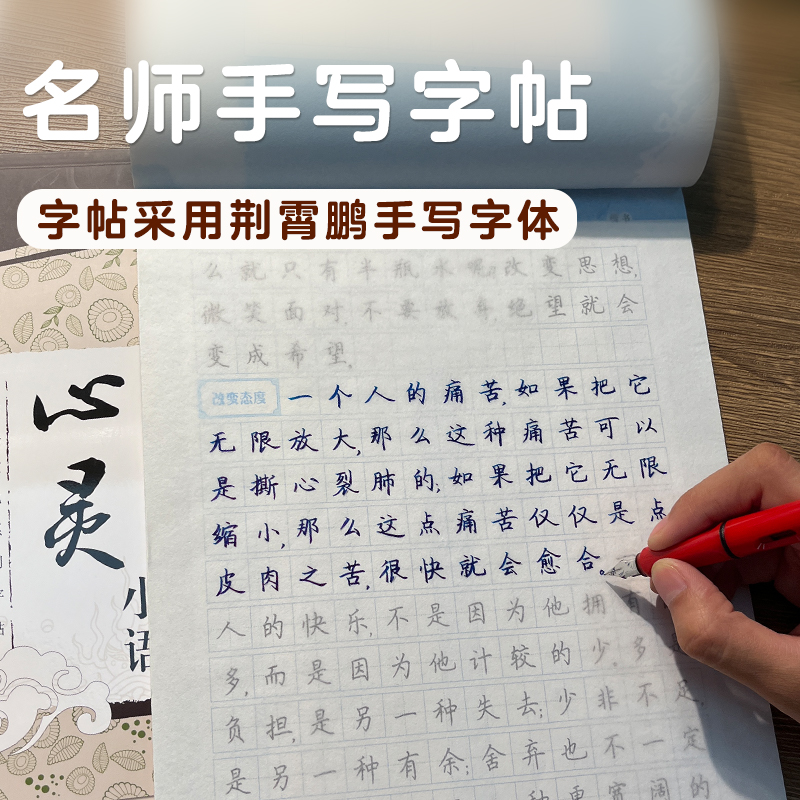 名师手写字帖
字帖采用荆霄鹏手写字体
么就只有半瓶水呢。改变思想,
微笑面对,不要放弃,绝望就会
变成希望。
改变态度 一个人的痛苦,如果把它
无限放大,那么这种痛苦可以
是撕心裂肺的;如果把它无限
缩小,那么这点痛苦仅仅是点
皮肉之苦,很快就会愈合。
人的快乐,不是因为他拥有
多,而是因为他计较的少。多
负担,是另一种失去;少非不足,
是另一种有余;舍弃也不一定
种更宽阔的
心灵
小语